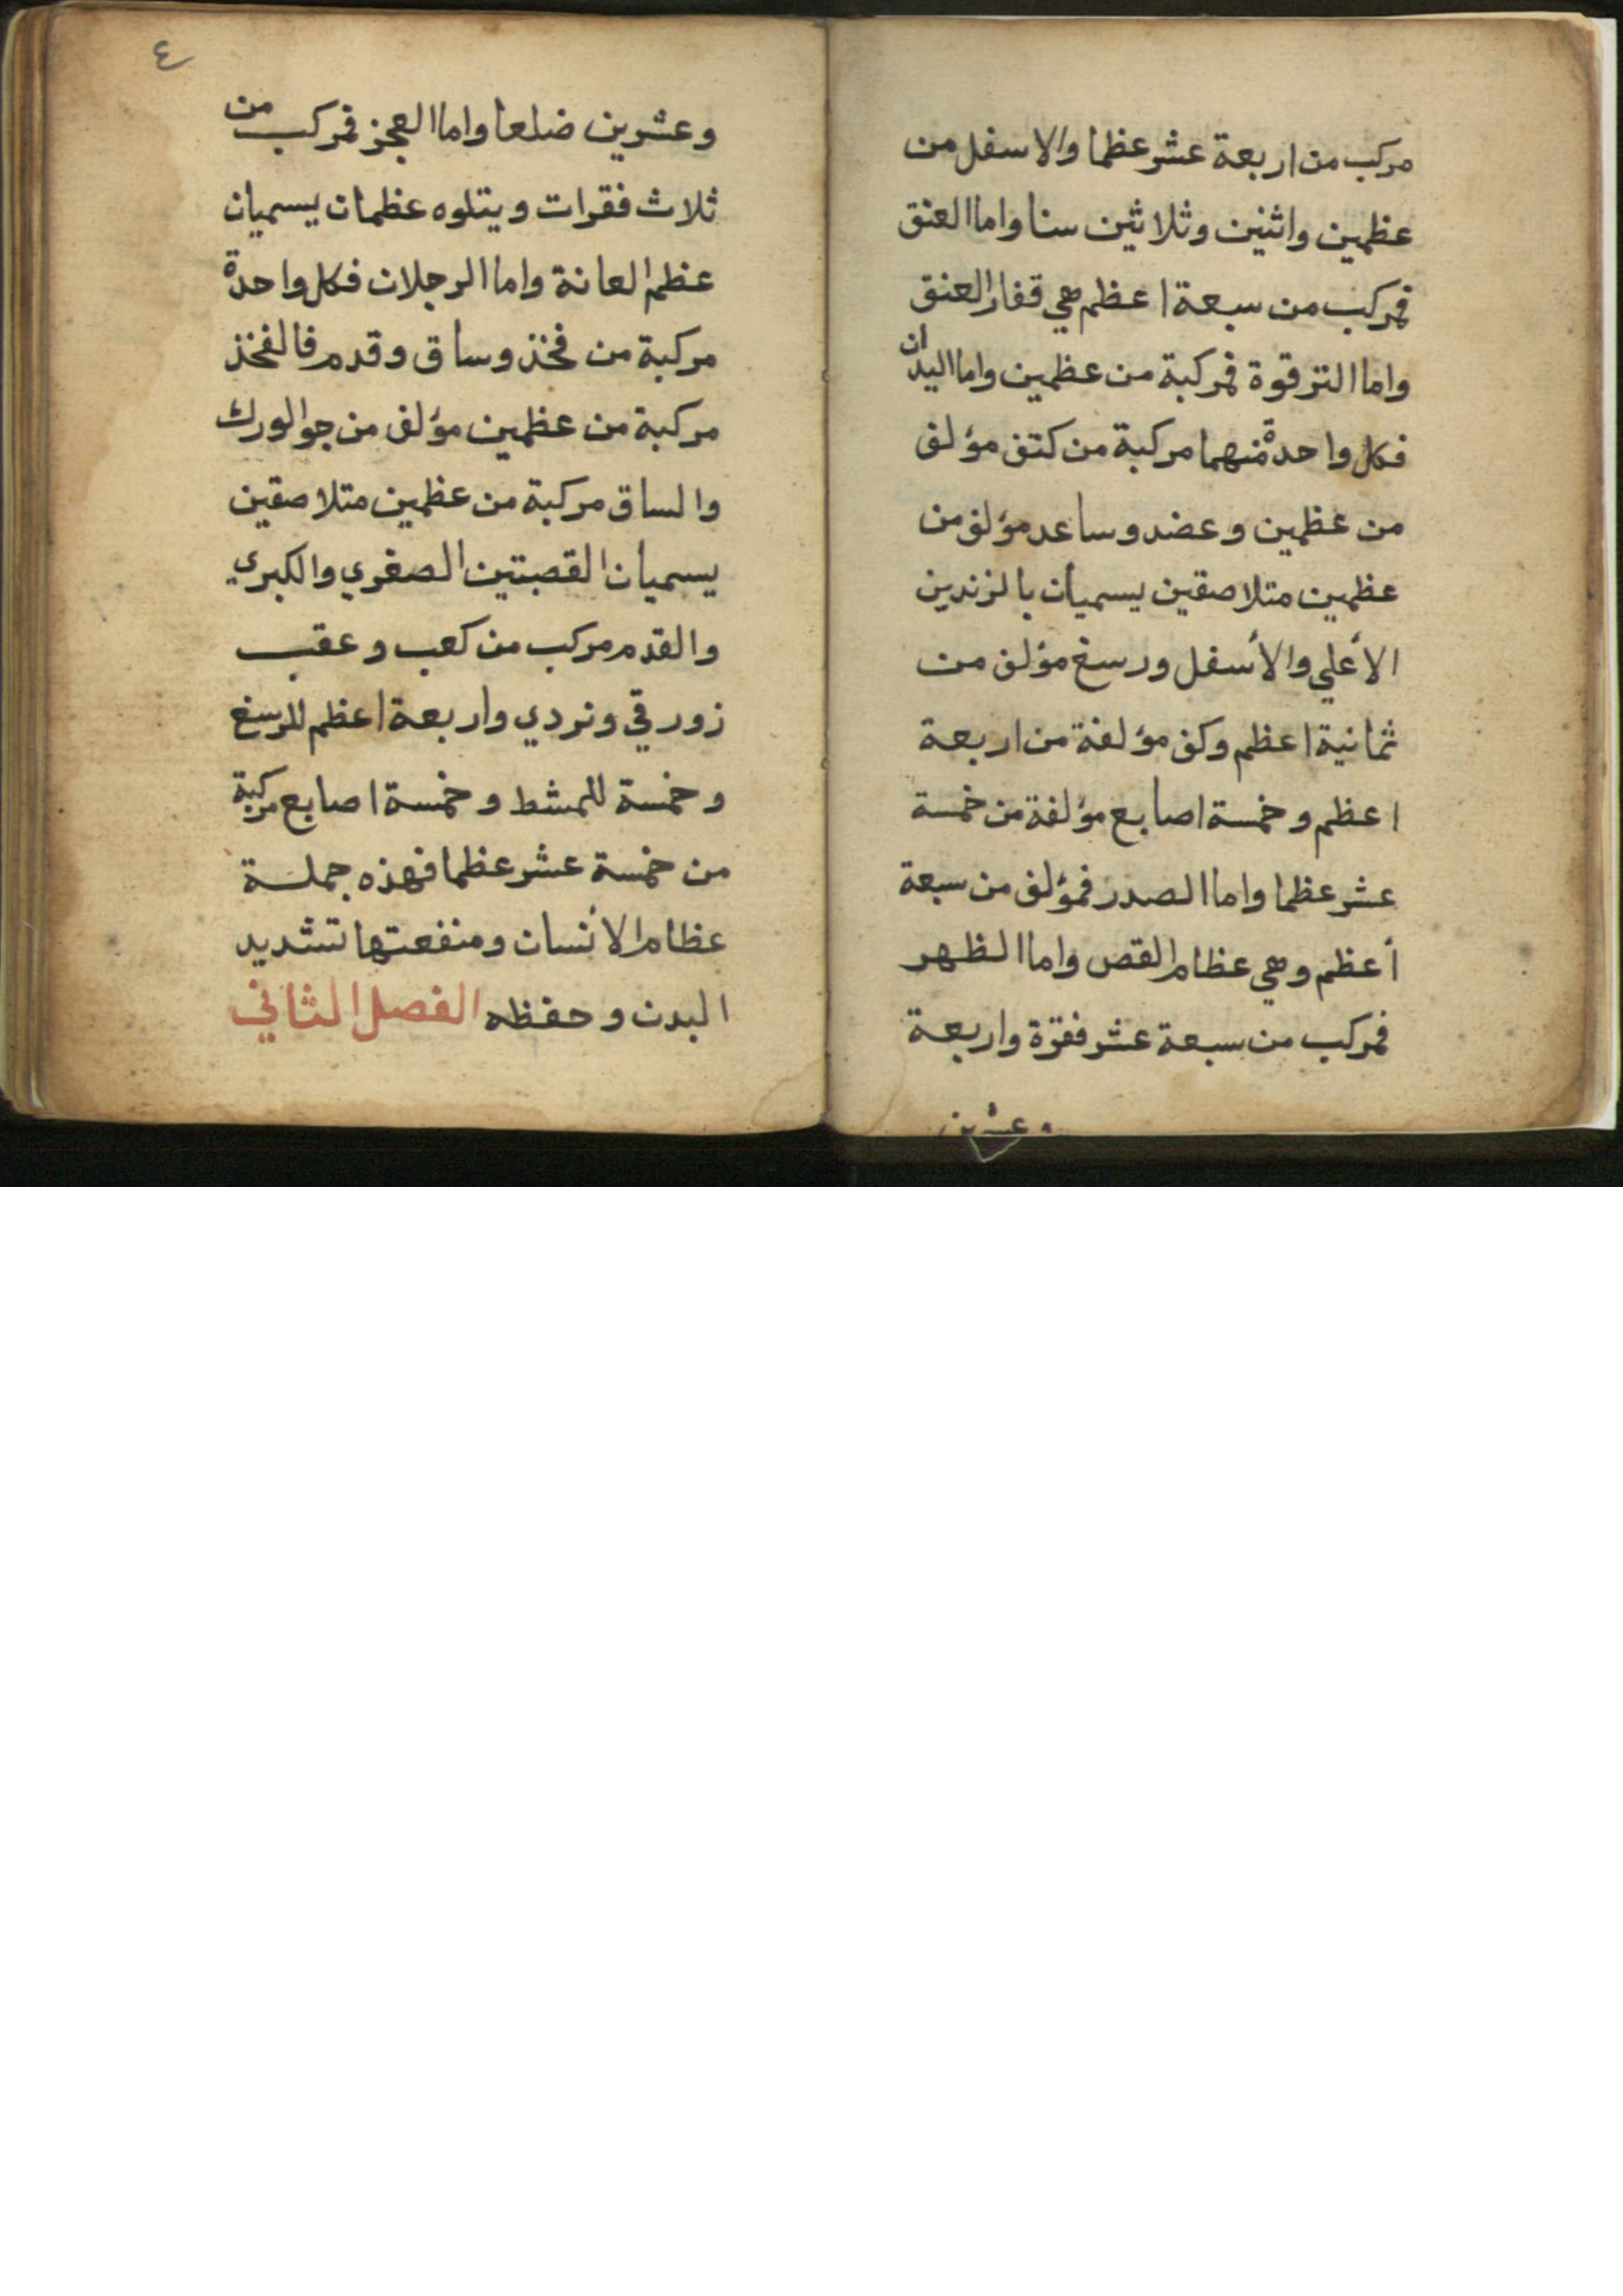 مركب من اربعة عشر عظما والاسفل من
عظمين واثنين وثلاثين سنا واما العنق
فمركب من سبعة اعظم هي قفار العنق
واما الترقوة فمركبة من عظمين واما اليدان
فكل واحدة منهما مركبة من كتف مؤلف
من عظمين وعضد وساعد مؤلف من
عظمين متلاصقين يسميان بالزندين
الأعلي والأسفل ورسغ مؤلف من
ثمانية اعظم وكف مؤلفة من اربعة
اعظم وخمسة اصابع مؤلفة من خمسة
عشر عظما واما الصدر فمؤلف من سبعة
أعظم وهي عظام القص واما الظهر
فمركب من سبعة عشر فقرة واربعة
وعشرين
٤
وعشرين ضلعا واما العجز فمركب من
ثلاث فقرات ويتلوه عظمان يسميان
عظم العانة واما الرجلان فكل واحدة
مركبة من فخذ وساق وقدم فالفخذ
مركبة من عظمين مؤلف من جو الورك
والساق مركبة من عظمين متلاصقين
يسميان القصبتين الصغري والكبري
والقدم مركب من كعب وعقب
زورقي ونردي واربعة اعظم للرسغ
وخمسة للمشط وخمسة اصابع مركبة
من خمسة عشر عظما فهذه جملة
عظام الأنسان ومنفعتها تشديد
البدن وحفظه الفصل الثاني